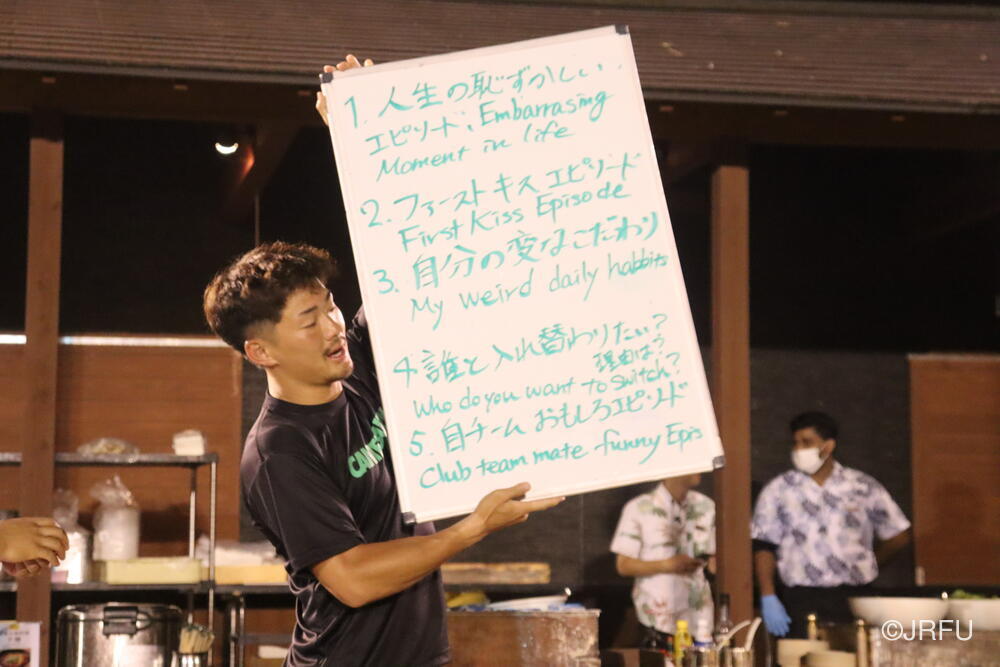 1. 人生の恥ずかしい
エピソード; Embarrasing
Moment in life
2. ファーストキスエピソード
First Kiss Episode
3. 自分の変なこだわり
My weird daily habbits
4. 誰と入れ替わりたい?
理由は?
Who do you want to switch?
5. 自チームおもしろエピソード
Club team mate funny Epis
©JRFU